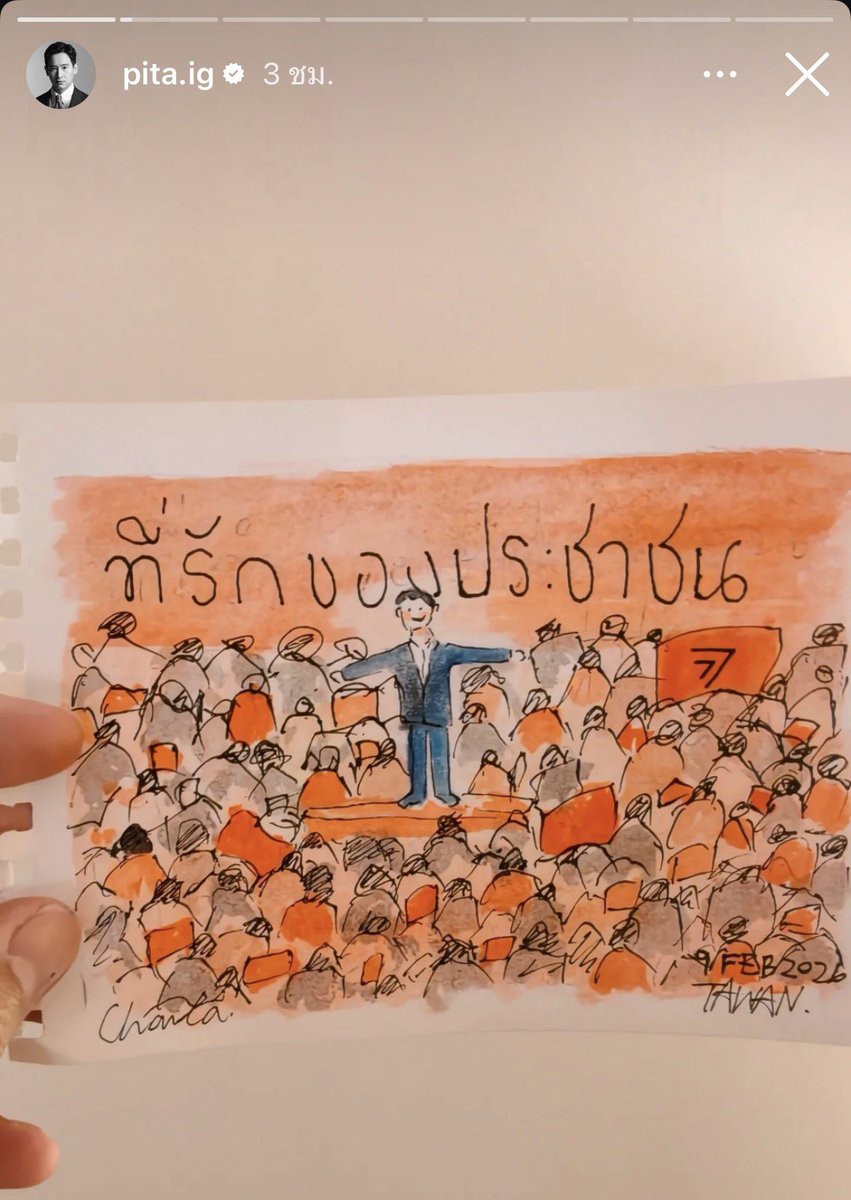 pita.ig 3 ชม.
ที่รักของประชาชน
9 FEB 2026
TAWAN.